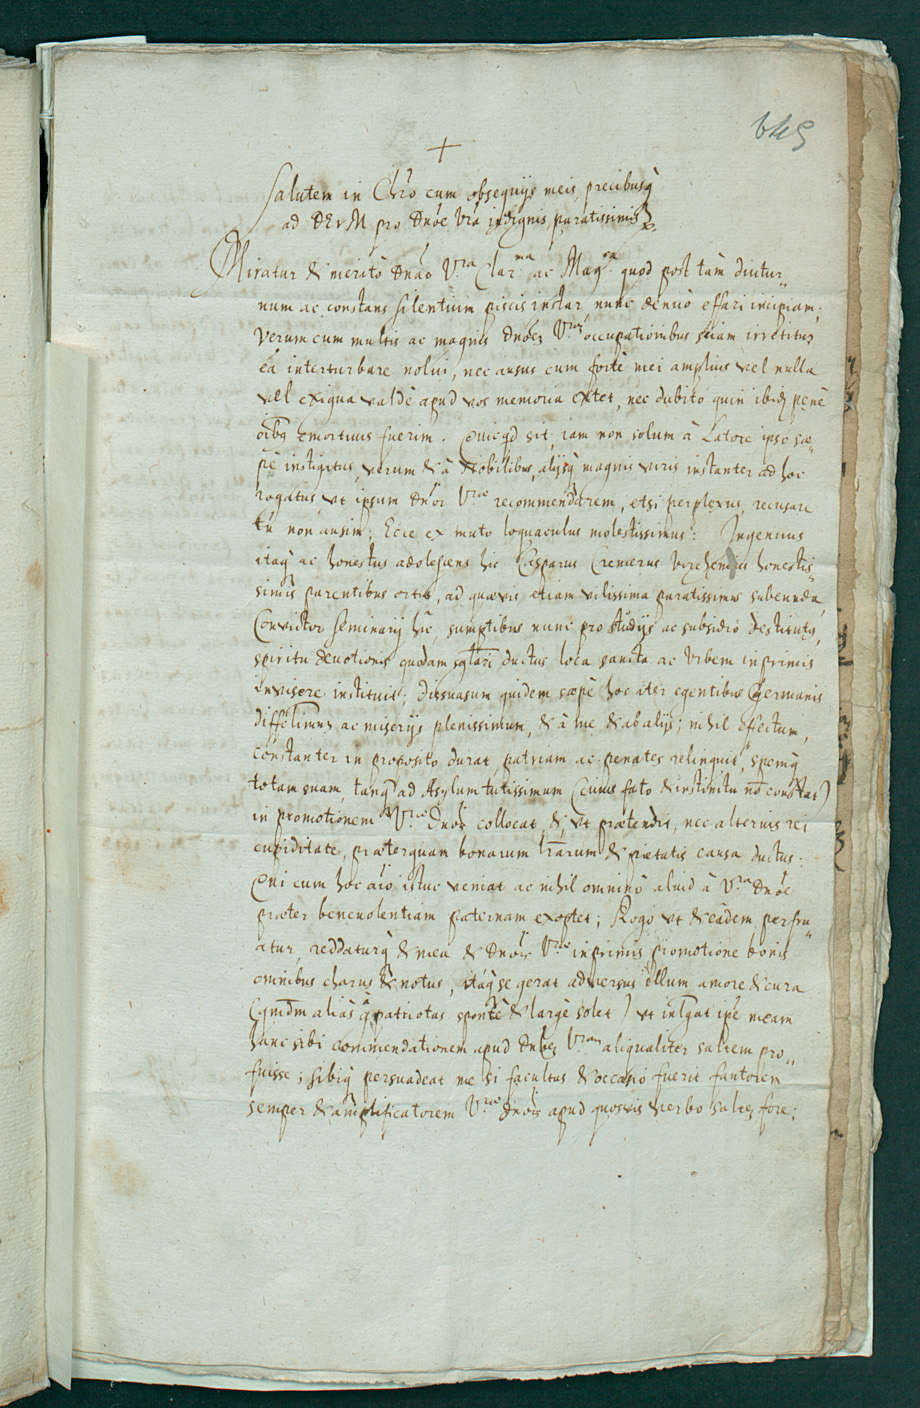 649
+
Salutem in Chro cum obsequijs meis, precibusq
ad DEVM pro Dnoe Vra indignis, paratissimis
Miratur & meritò Dnao V.ra Clar.ma ac Mag.ca quod post tàm diutur„
num ac constans silentium piscis instar nunc denuò effari incipiam;
Verum cum multis ac magnis Dnoes V.ras occupationibus sciam irretitus
eâ interturbare nolui, nec ausus cum fortè mei amplius vel nulla
vel exigua valdè apud vos memoria extet, nec dubito quin ibid penè
oibq emortuus fuerim. Quicqd sit, iam non solum à Latore ipso sæ„
pè instigatus, verum & à Nobilibus, alijsq magnis viris instanter ad hoc
rogatus, vt ipsum Dnoi V.rae recommendarem, etsi perplexus, recusare
tn non ausim; Ecce ex muto loquaculus molestissimus: Ingenuus
itaq ac honestus adolescens hic Casparus Cremerus honestis„
simis parentibus ortus, ad quævis etiam vilissima paratissimus subeunda,
Convictor Seminarij hic, sumptibus nunc pro studijs ac subsidio destitutq,
spiritu deuotionis quodam ductus loca sancta ac Vrbem inprimis
invisere instituit; dissuasum quidem sæpè hoc iter egentibus Germanis
ac miserijs plenissimum, & à me & ab alijs; nihil effectum,
constanter in proposito durat, patriam ac penates relinquit, spemq
totam suam, tanq ad Asylum tutissimum (cuius fato & instinctu nō constat)
in promotionem V.rae Dnois collocat, &, vt prætendit, nec alterius rei
cupiditate, præterquam bonarum lrarum & pietatis causa ductus.
Qui cum hoc aīo istuc veniat ac nihil omninò aliud à V.ra Dnoe
præter beneuolentiam paternam exoptet; Rogo vt & eâdem perfru„
atur, reddaturq & mea & Dnois V.rae inprimis promotione bonis
omnibus charus & notus, itaq se gerat adversus illum amore & cura
(qmdm aliàs patriotas spontè & largè solet) vt intlgat ipe meam
hanc sibi commendationem apud Dnoes V.ras aliqualiter saltem pro„
fuisse; sibiq persuadeat me si facultas & occasio fuerit fautorem
semper & amplificatorem V.rae Dnois apud quosvis verbo saltē fore;